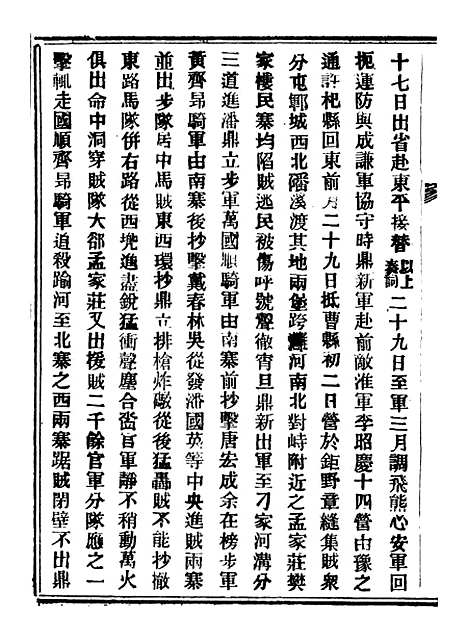 十七日出省赴東平接替以上奏詞二十九日至軍三月調飛熊心安軍回
扼運防與成謙軍協守時鼎新軍赴前敵淮軍李昭慶十四營由豫之
通許杞縣回東前月二十九日抵曹縣初二日營於鉅野章縫集賊衆
分屯鄆城西北皤溪渡其地兩堡跨河南北對峙附近之孟家莊樊
家樓民寨均陷賊逃民被傷呼號聲徹宵旦鼎新出軍至刁家河溝分
三道進潘鼎立步軍萬國順騎軍由南寨前抄擊唐宏成余在榜步軍
黃齊昂騎軍由南寨後抄擊戴春林吳從發潘國英等中央進賊兩寨
並出步隊居中馬賊東西環抄鼎立排槍炸礮從後猛轟賊不能抄撤
東路馬隊併右路從西兜進盡銳猛衝聲塵合沓官軍靜不稍動萬火
俱出命中洞穿賊隊大郤孟家莊又出援賊二千餘官軍分隊應之一
擊輒走國順齊昂騎軍追殺踰河至北寨之西兩寨踞賊閉壁不出鼎